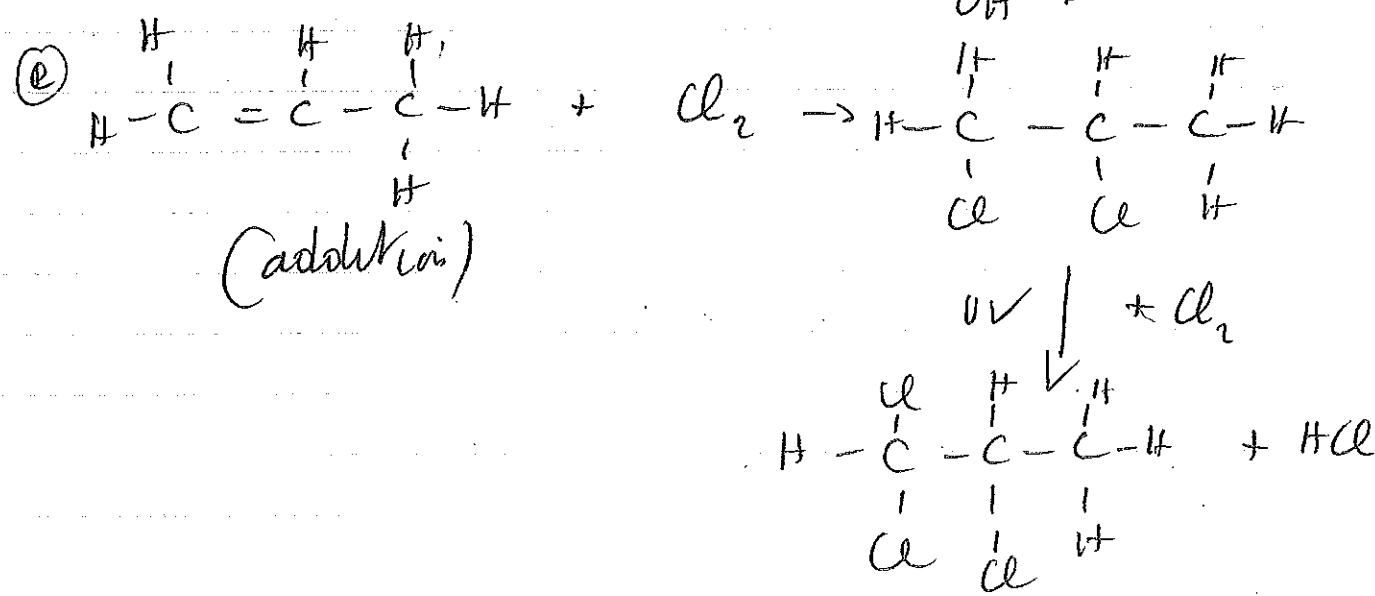 OH
H H H H H H
(e) H - C = C - C - H + Cl2 → H - C - C - C - H
H Cl Cl H
(addition)
UV + Cl2
Cl H H
H - C - C - C - H + HCl
Cl Cl H